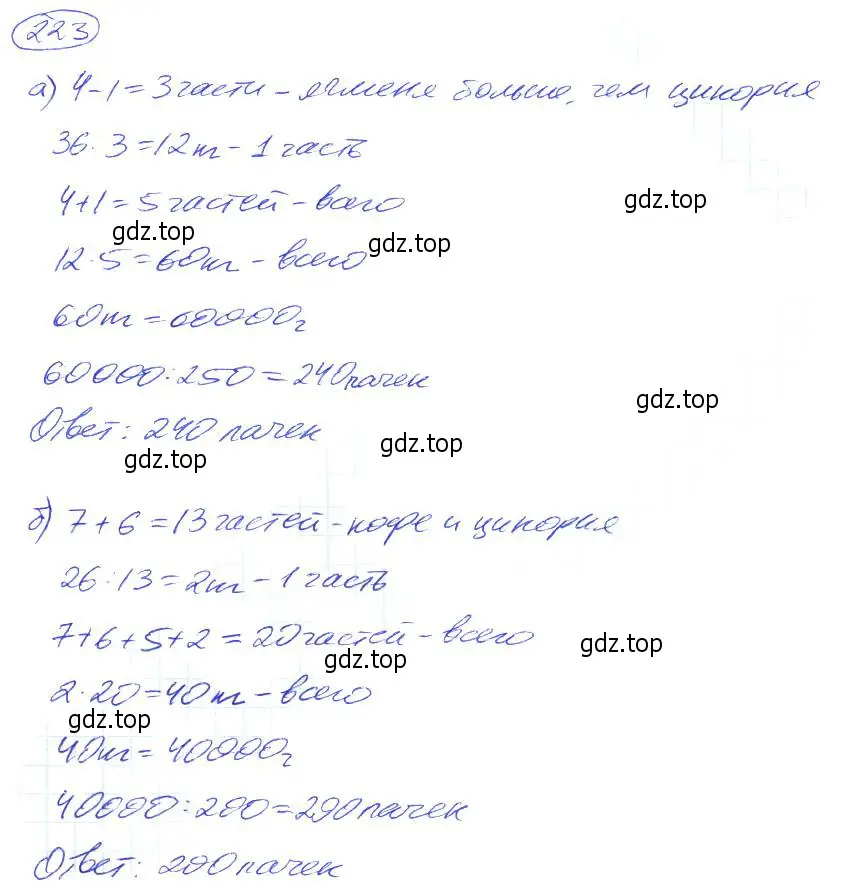 223
а) 4-1=3 части - ячменя больше, чем цикория
36:3=12кг - 1 часть
4+1=5 частей - всего
gdz.top
gdz.top gdz.top
12·5=60кг - всего
60кг=60000г
60000:250=240 пачек
gdz.top
Ответ: 240 пачек
gdz.top gdz.top
б) 7+6=13 частей - кофе и цикория
26:13=2кг - 1 часть
7+6+5+2=20 частей - всего
gdz.top gdz.top
2·20=40кг - всего
gdz.top
40кг=40000г
40000:200=200 пачек
Ответ: 200 пачек